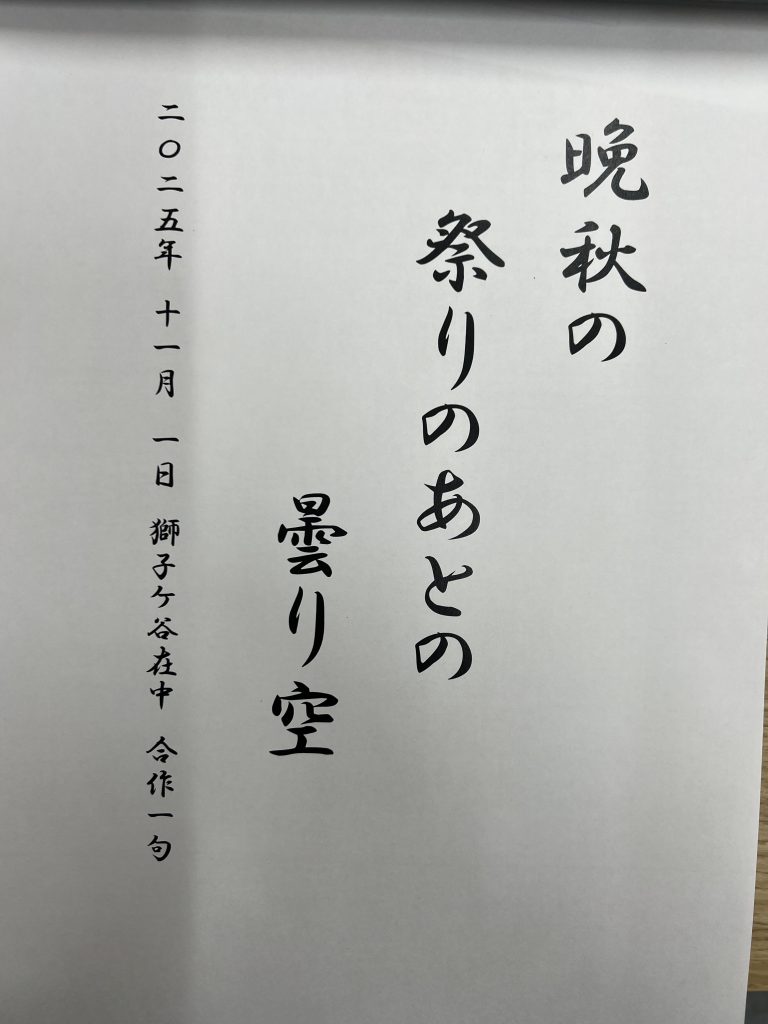 晩秋の
祭りのあとの
曇り空
二〇二五年 十一月 一日 獅子ケ谷在中 合作一句